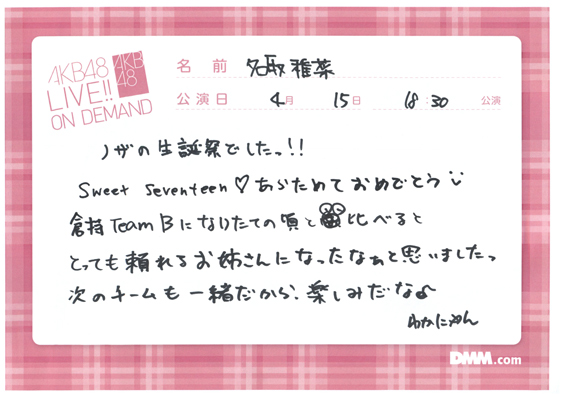 AKB48
LIVE!!
ON DEMAND
AKB
48
名前 名取 稚菜
公演日 4月 15日 18:30 公演
ノザの生誕祭でしたっ!!
Sweet Seventeen♡あらためておめでとう
倉持Team Bになりたての頃と比べると
とっても頼れるお姉さんになったなぁと思いましたっ
次のチームも一緒だから、楽しみだな♪
わかにゃん
DMM.com